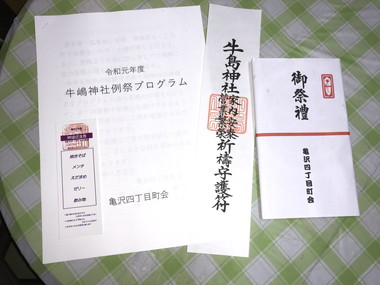 令和元年度
牛嶋神社例祭プログラム
亀沢四丁目町会
焼きそば
メンチ
えだまめ
ゼリー
飲み物
牛島神社
家内安泰
営業繁栄
祈禱守護符
御祭禮
亀沢四丁目町会